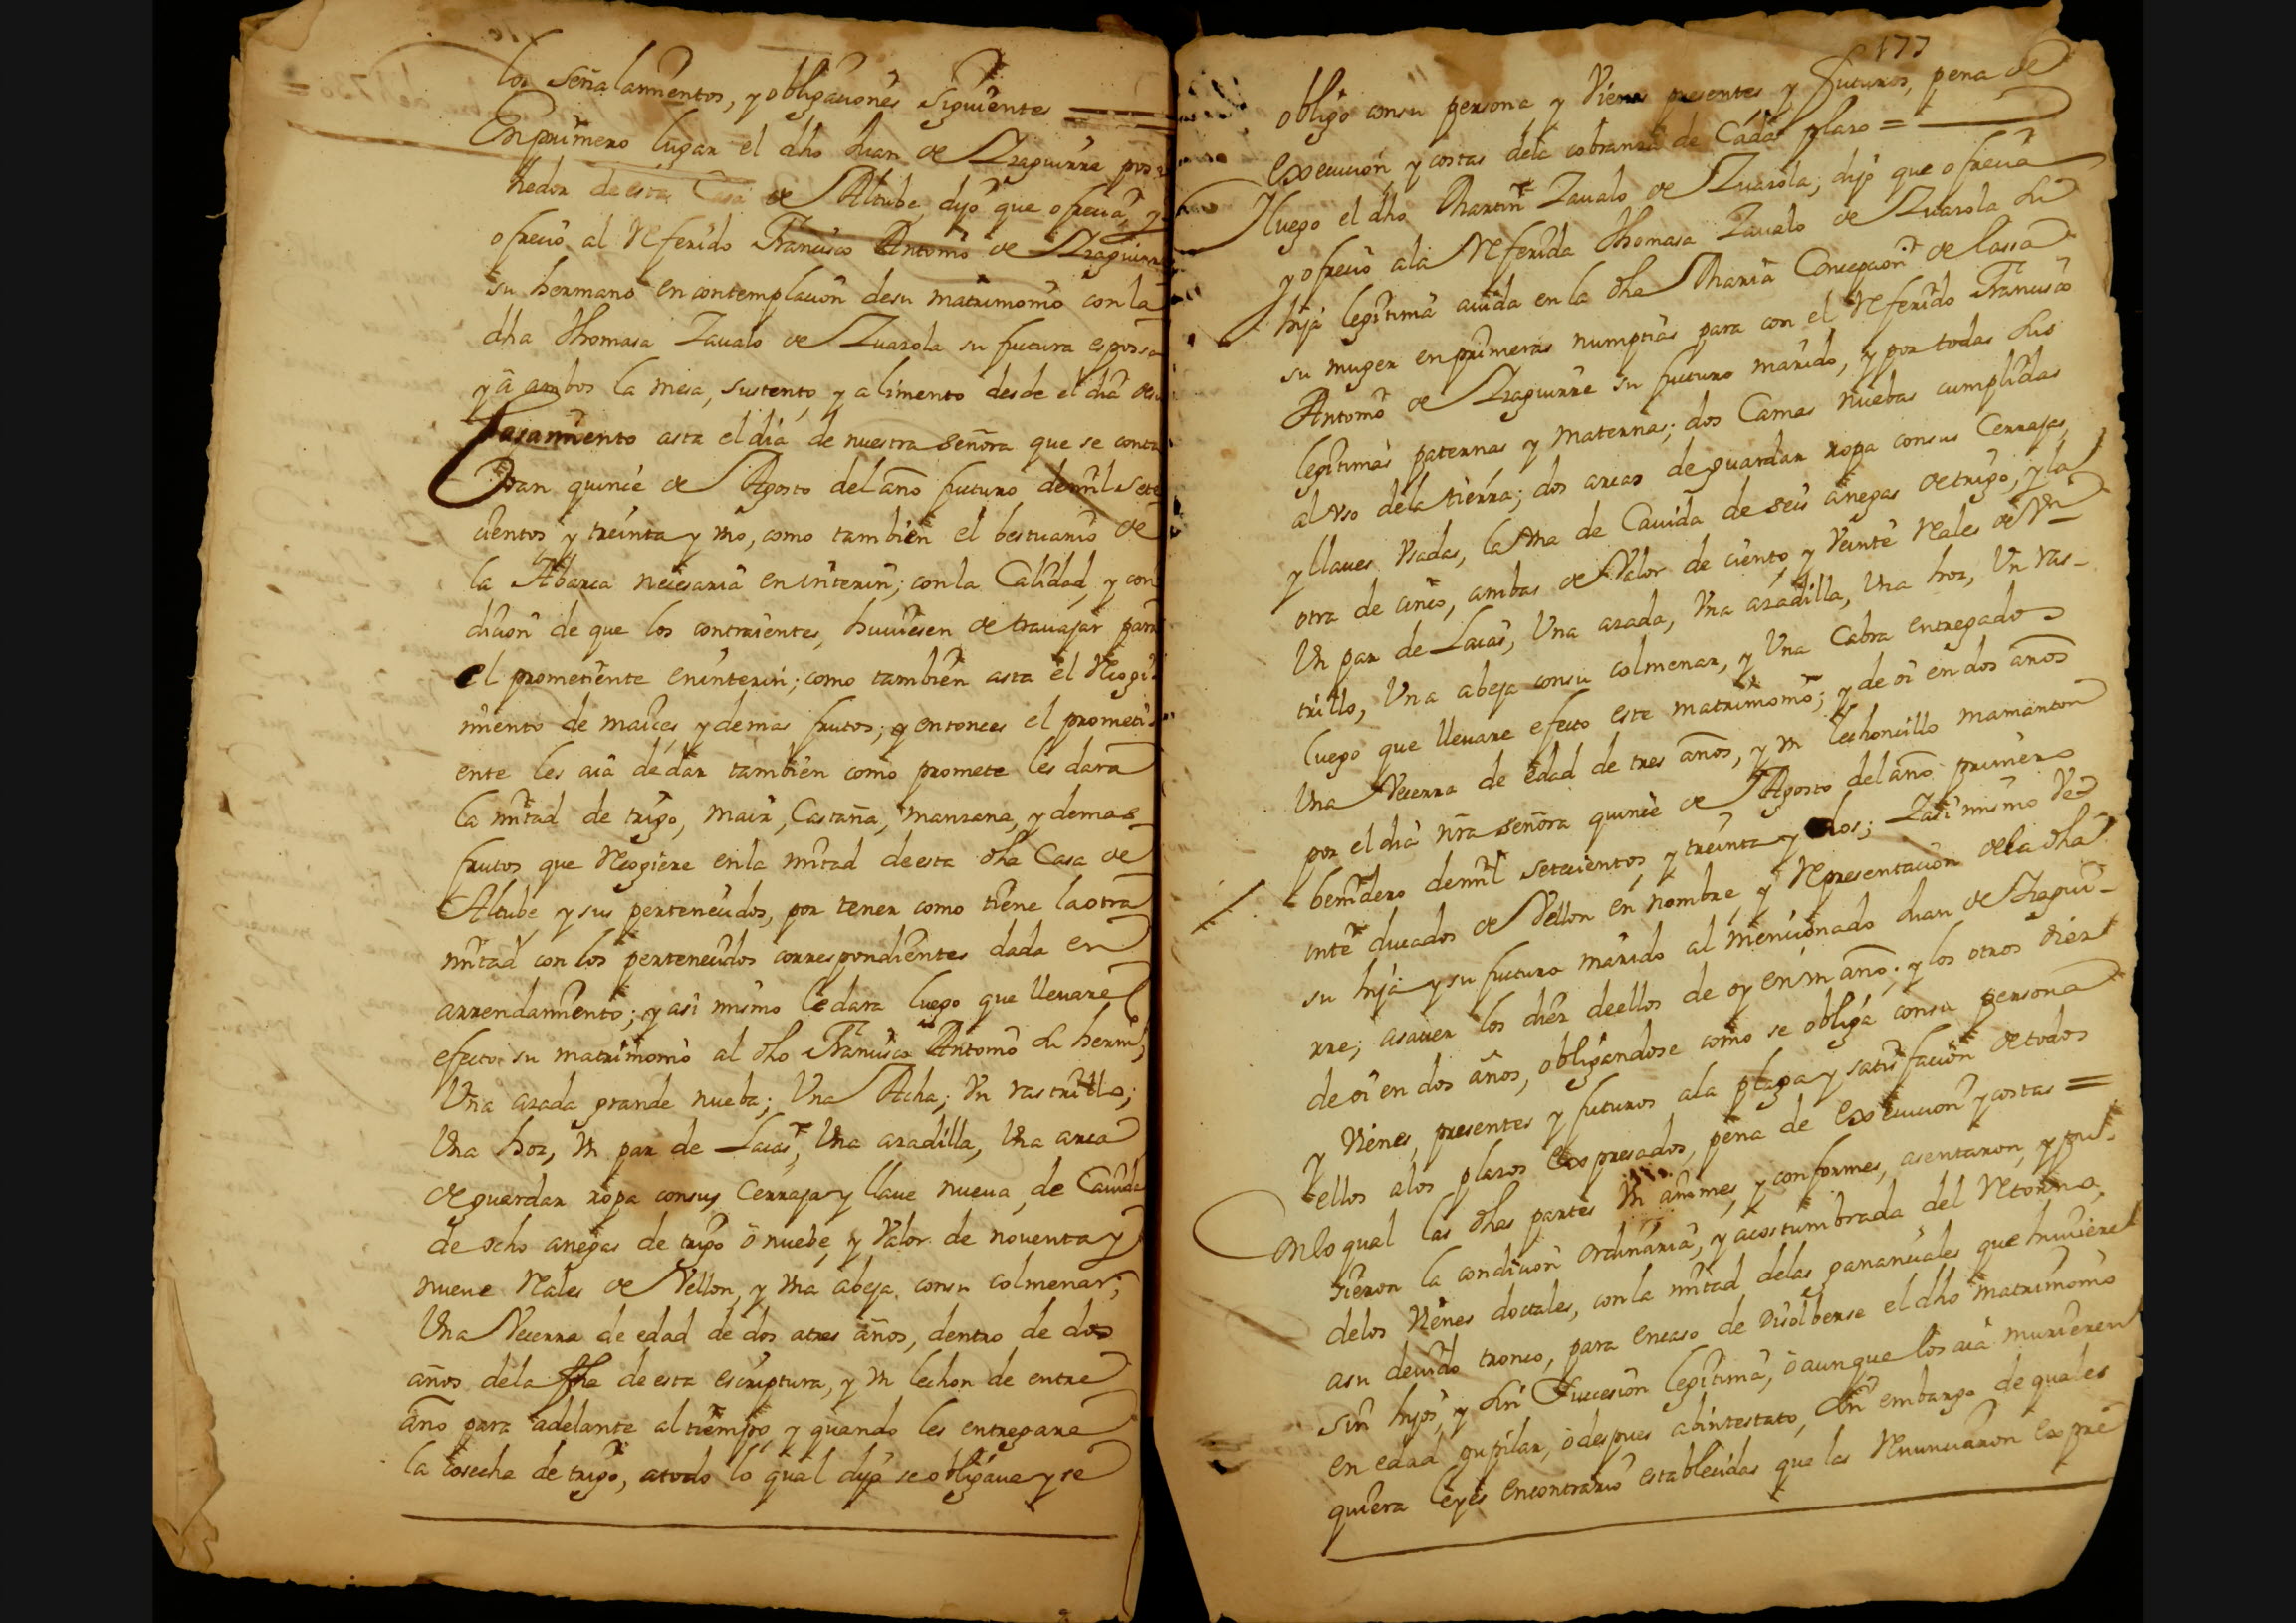 los señalamientos, y obligaciones siguientes =
En primero lugar el dho Juan de Yzaguirre pose
hedor de esta Casa de Altube, dijo que ofrecia, y
ofrecio al Referido Francisco Antonio de Yzaguirre
su hermano en contemplacion de su matrimonio con la
dha Thomasa Zaualo de Zuazola su futura esposa
y a ambos la mesa, sustento, y alimento desde el dia de su
Casamiento asta el dia de nuestra señora que se conta
Ran quince de Agosto del año futuro de mil sete
cientos y treinta y Vno, como tambien el bestuario de
la Abarca necesaria en interin; con la Calidad, y con
dicion de que los contraientes, huuiesen de trauajar para
el prometiente en interin; como tambien asta el Recogi
miento de maices y demas frutos; y entonces el prometi
ente les auia de dar tambien como promete les dara
la mitad de trigo, Maiz, Castaña, manzana, y demas
frutos que Recogiere en la mitad de esta dha Casa de
Altube y sus pertenecidos, por tener como tiene la otra
mitad con los pertenecidos correspondientes dada en
arrendamiento; y asi mismo le dara luego que lleuare
efecto su matrimonio al dho Francisco Antonio su herm,
Vna azada grande nueba; Vna Acha; Vn rastrillo;
Vna hoz, Vn par de Laias, Vna azadilla, Vna arca
de guardar ropa con suy Cerraja y llaue nueua, de Cauida
de ocho anegas de trigo ó nuebe, y Valor de nouenta y
nueue Reales de Vellon, y Vna abeja con su colmenar;
Vna Vecerra de edad de dos a tres años, dentro de dos
años de la fha de esta escriptura, y Vn lechon de entre
año para adelante al tiempo, y quando les entregare
la cosecha de trigo, a todo lo qual dijo se obligaua y se
177
obligó con su persona, y Vienes presentes, y futuros, pena de
execucion, y costas de la cobranza de Cada plazo =
Y luego el dho Martin Zaualo de Zuazola, dijo que ofrecia
y ofrecio a la Referida Thomasa Zaualo de Zuazola su
hija legitima auida en la dha Maria Concepcion de Lassa
su muger en primeras numptias para con el Referido Francisco
Antonio de Yzaguirre su futuro marido, y por todas sus
legitimas paternas y maternas; dos Camas nuebas cumplidas
al Vso de la tierra; dos arcas de guardar ropa con sus Cerrajas,
y llaues Vsadas, la Vna de Cauida de seis anegas de trigo, y la
otra de cinco, ambas de Valor de ciento y Veinte Reales de Vn
Vn par de Laias, Vna azada, Vna azadilla, Vna hoz, Vn ras-
trillo, Vna abeja con su colmenar, y Vna Cabra entregados
luego que lleuare efecto este matrimonio; y de oi en dos años
Vna Vecerra de edad de tres años, y Vn lechoncillo mamanton
por el dia nra señora quince de Agosto del año primero
benidero de mil setecientos y treinta y dos; Y asi mismo Ve
inte ducados de Vellon en nombre, y Representacion de la dha
su hija y su futuro marido al mencionado Juan de Yzagui-
rre; asauer los diez de ellos de oy en Vn año; y los otros diez
de oi en dos años, obligandose como se obliga con su persona
y Vienes, presentes y futuros a la paga y satisfacion de todos
ellos a los plazos expresados, pena de execucion y costas =
Con lo qual las dhas partes Vnanimes, y conformes, asentaron, y pu-
sieron la condicion ordinaria, y acostumbrada del Retorno
de los Vienes dotales, con la mitad de las gananciales que huuiere
a su deuido tronco, para en caso de disolberse el dho matrimonio
sin hijos, y sin Succesion legitima, ó aunque los aia murieren
en edad pupilar, ó despues abintestato, sin embargo de quales
quiera leyes en contrario establecidas que las Renunciaron expre